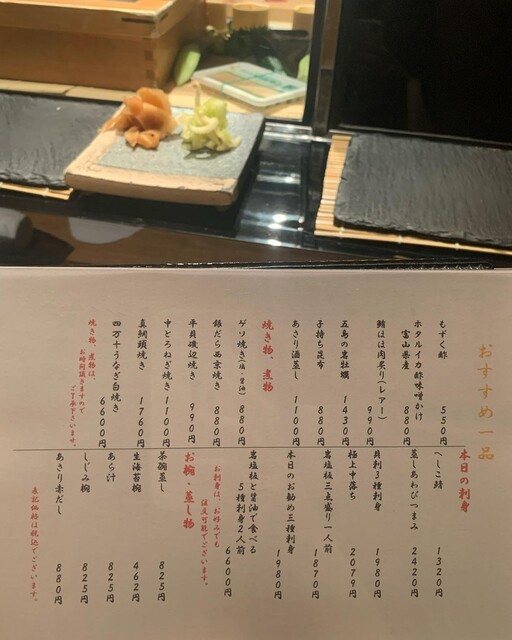 おすすめ一品
もずく酢 550円
ホタルイカ酢味噌かけ
富山県産 880円
鮪ほほ肉炙り(レアー) 990円
五島の岩牡蠣 1430円
子持ち昆布 880円
あさり酒蒸し 1100円
焼き物、煮物
ゲソ焼き(塩・醤油) 880円
銀だら西京焼き 880円
平貝磯辺焼き 990円
中とろねぎ焼き 1100円
真鯛頬焼き 1760円
四万十うなぎ白焼き 6600円
焼き物、煮物は、
お時間頂きますので
ご了承下さいませ。
本日の刺身
へしこ鯖 1320円
蒸しあわびつまみ 2420円
貝刺3種刺身 1980円
極上中落ち 2079円
岩塩板三点盛り一人前 1870円
本日のお勧め三種刺身 1980円
岩塩板と醤油で食べる
5種刺身2人前 6600円
お刺身は、お好みでも
注文可能でございます。
お椀・蒸し物
茶碗蒸し 825円
生海苔椀 462円
あら汁 825円
しじみ椀 825円
あさり赤だし 880円
表記価格は税込でございます。